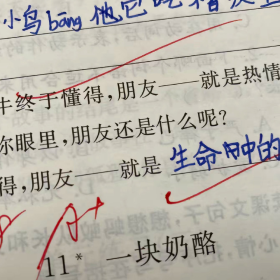 小鸟bāng他它吃
牛终于懂得，朋友——就是热情
你眼里，朋友还是什么呢？
得，朋友——就是 生命中的
A+
11* 一块奶酪